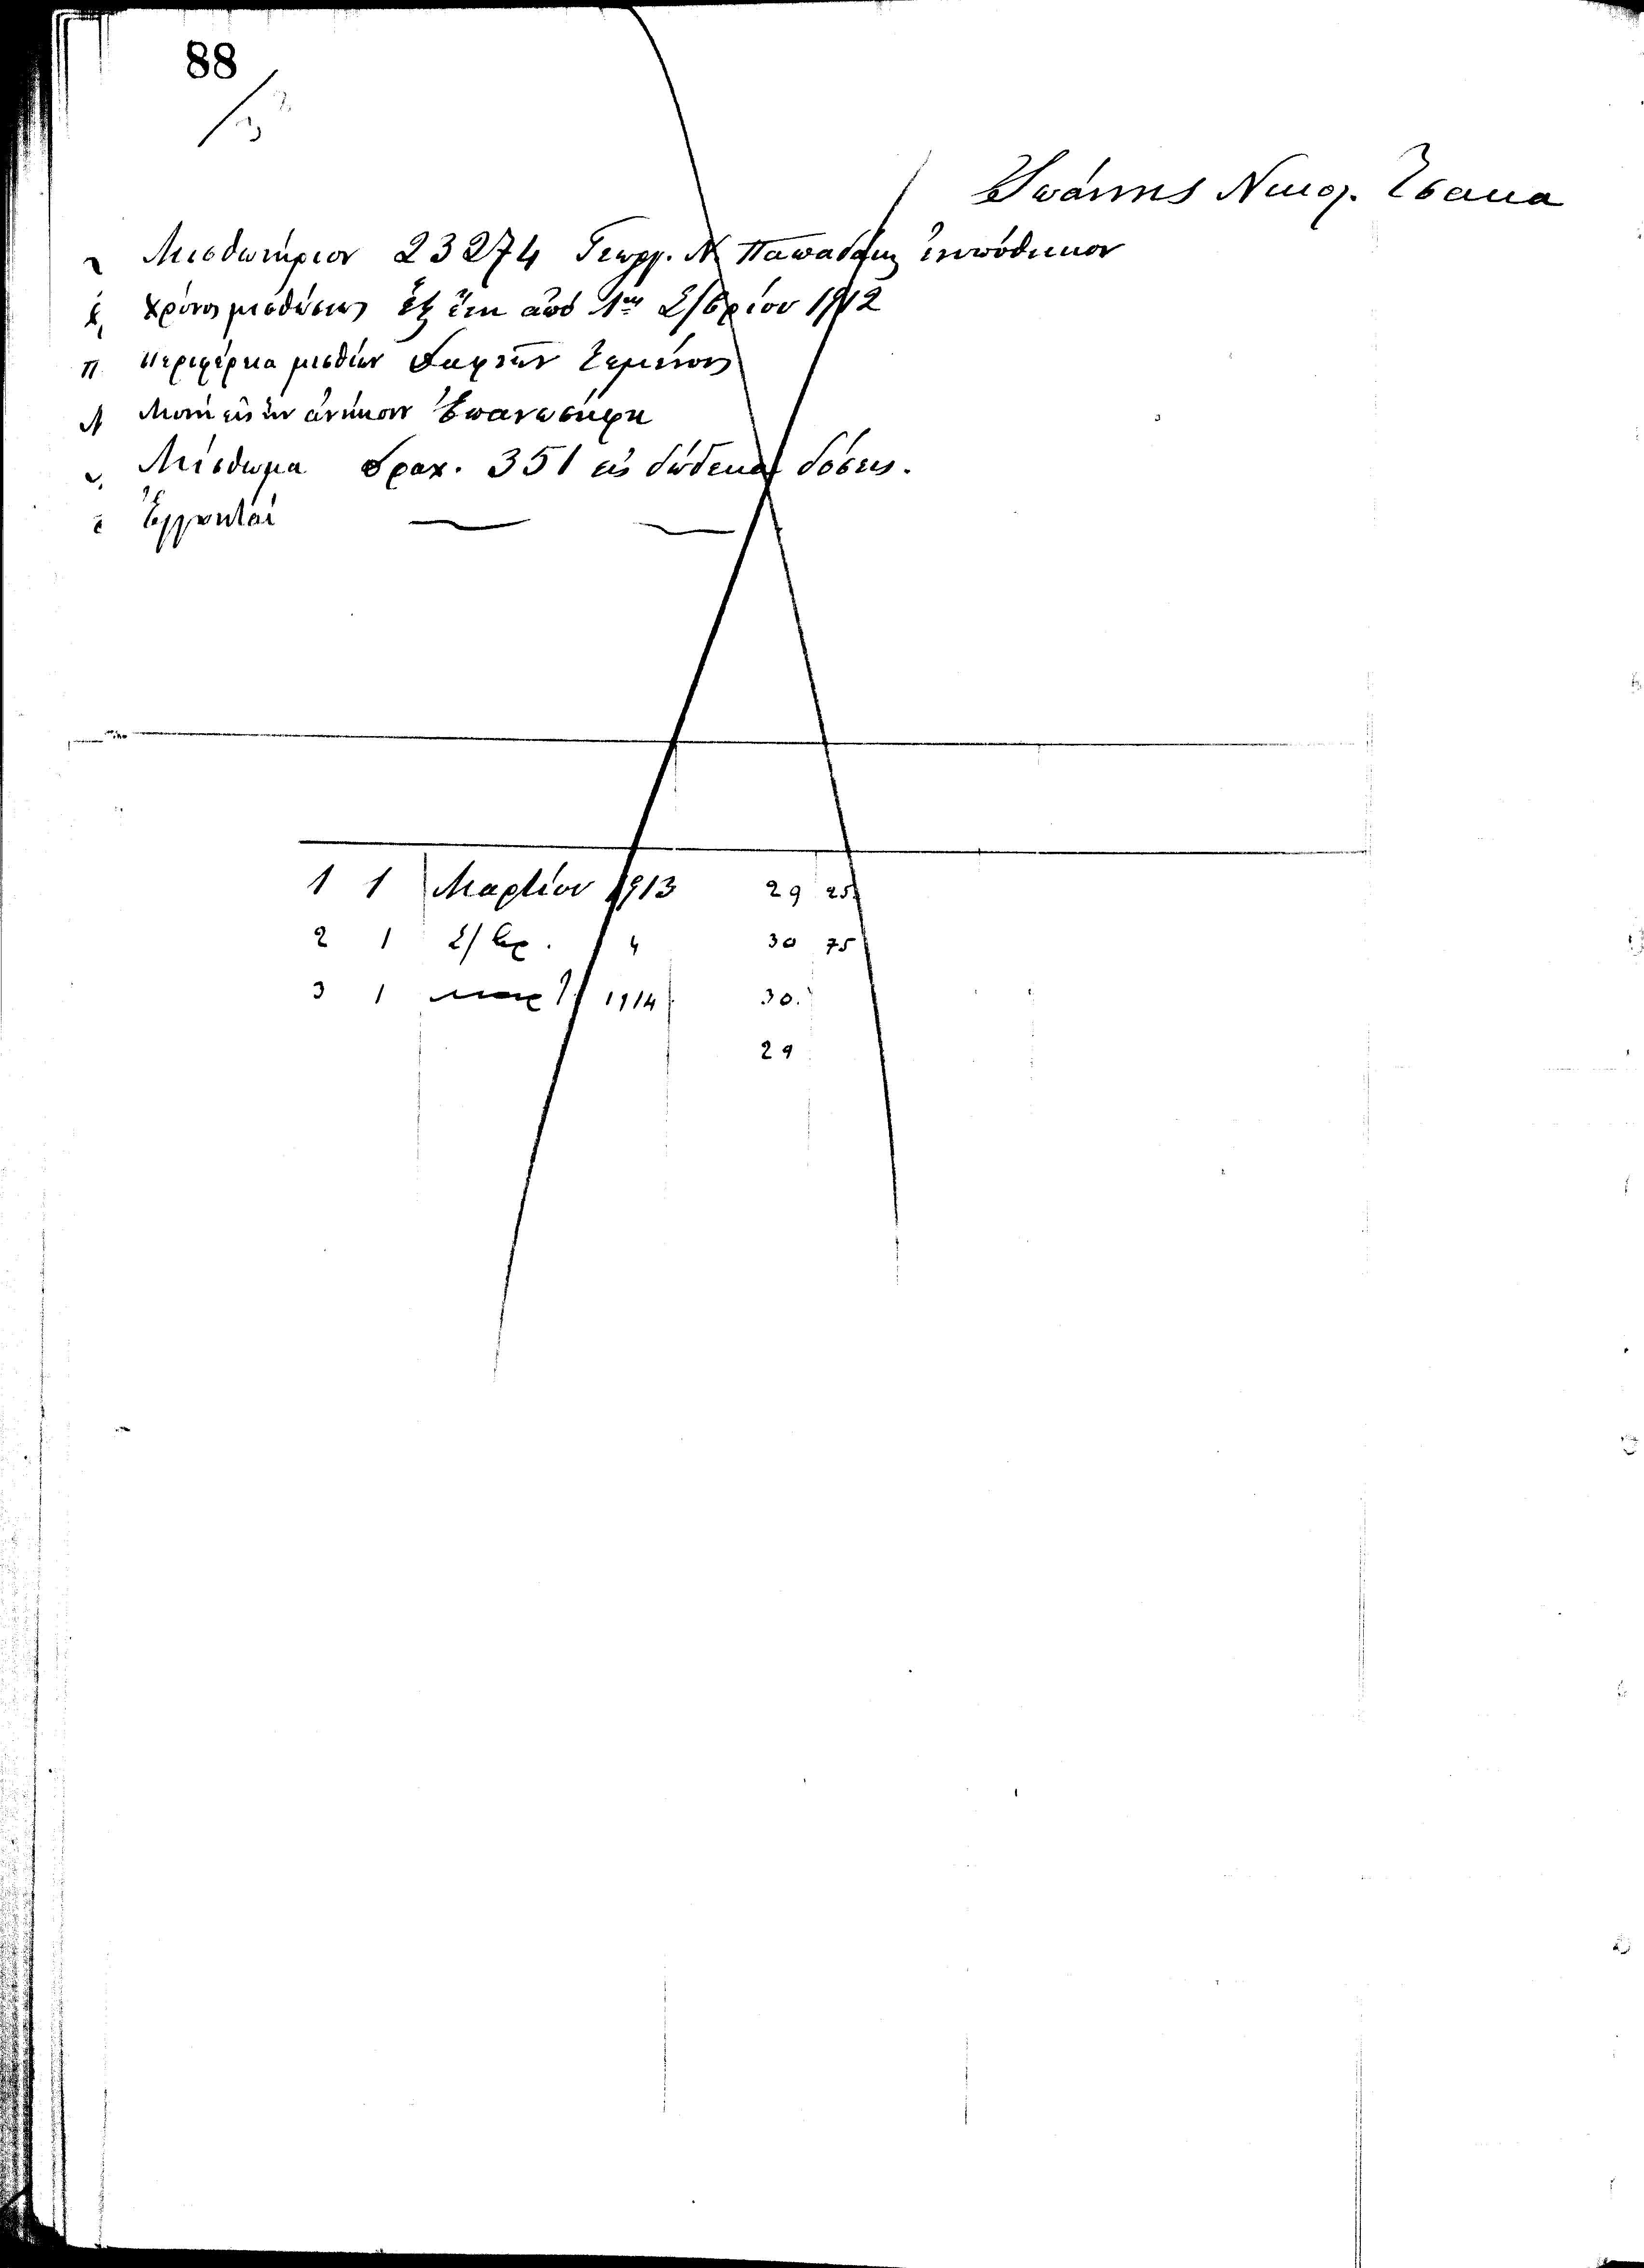 88
Ἰωάννης Νικολ. Τσακα
Μισθωτήριον 23274 Γεωργ. Ν. Παπαδάκη ἐνυπόθηκον
Χρόνος μισθώσεως ἕξ ἔτη ἀπό 1ης 7/βρίου 1912
Περιφέρεια μισθίων Δαφνῶν Τεμένους
Μονή εἰς ἥν ἀνήκουν Ἐπανωσήφη
Μίσθωμα Δραχ. 351 εἰς δώδεκα δόσεις.
Ἐγγυηταί
1 1 Μαρτίου 1913 29 25
2 1 7/βρ. " 30 75
3 1 Μαρτ. 1914 30.
29